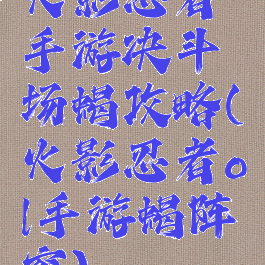 火影忍者
手游决斗
场蝎攻略(
火影忍者。
|手游蝎阵
容)